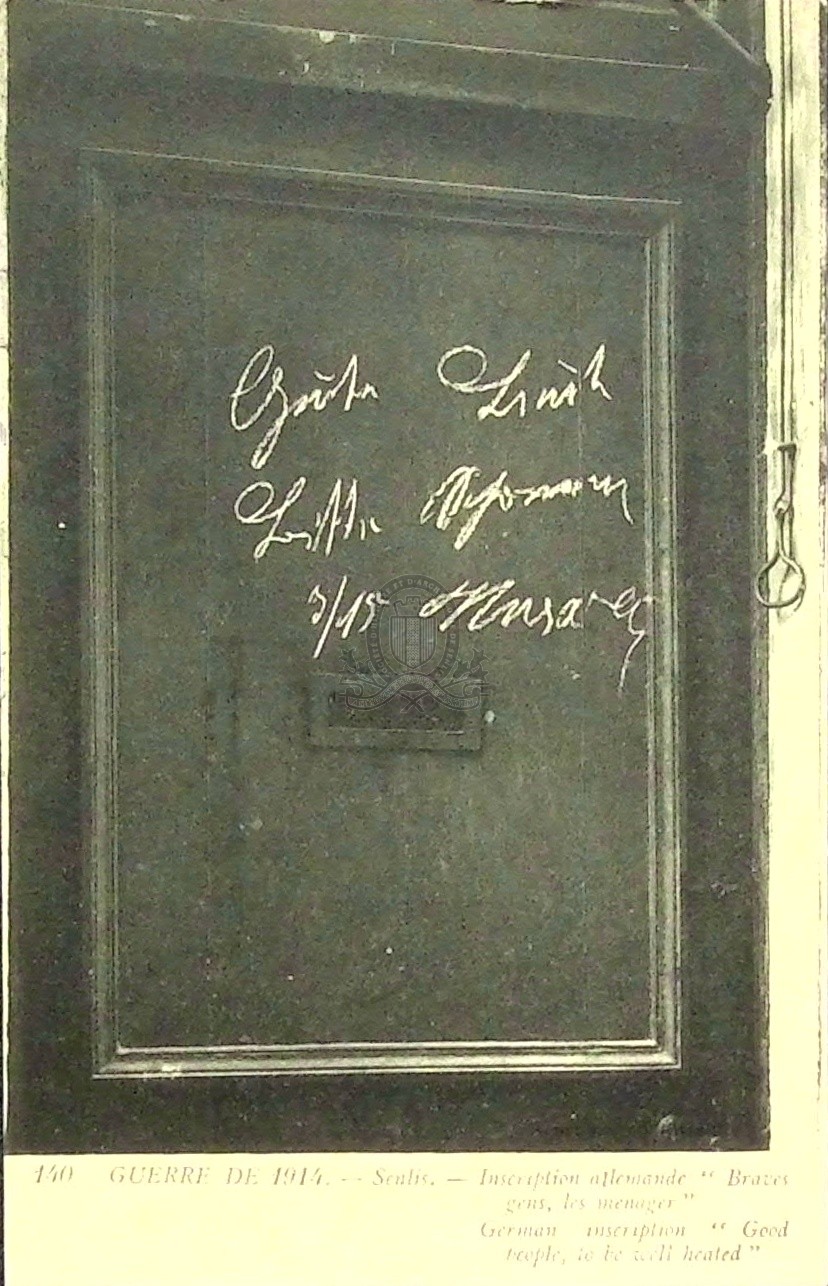 Gute Leute
Bitte Schonen
140 GUERRE DE 1914. -- Senlis. — Inscription allemande “ Braves
gens, les menager ”
German inscription “ Good
people, to be well heated ”